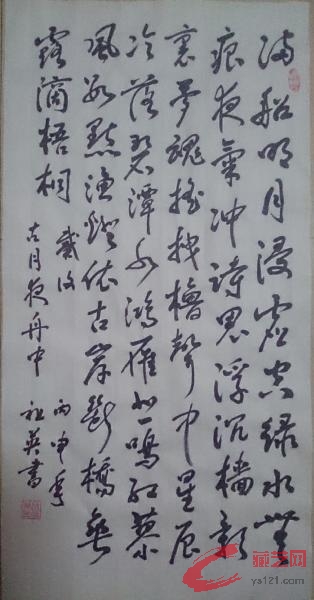 满船明月浸虚空绿水無
痕夜氣冲诗思浮沉樯影
裏夢魂摇拽橹聲中星辰
冷落碧潭水鸿雁悲鳴红蓼
風数點渔燈依古岸断橋垂
露滴梧桐 戴復
古月夜舟中 丙申年
祖英書
藏艺网
ys121.com